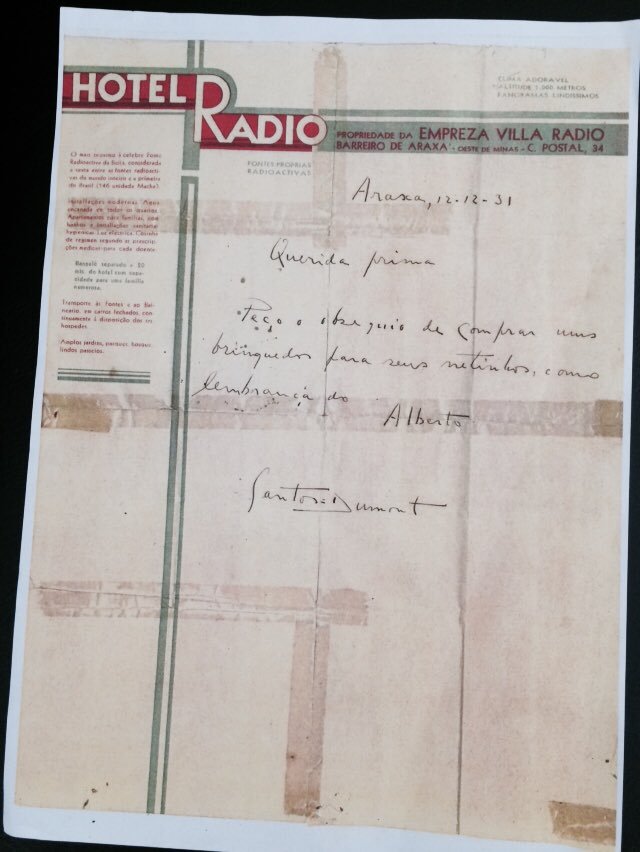 HOTEL RADIO
CLIMA ADORAVEL
ALTITUDE 1.000 METROS
PANORAMAS LINDISSIMOS
PROPRIEDADE DA EMPREZA VILLA RADIO
BARREIRO DE ARAXA' - OESTE DE MINAS - C. POSTAL, 34
FONTES PROPRIAS
RADIOACTIVAS
O mais proximo á celebre Fonte
Radioactiva da Beija, considerada
a sexta entre as fontes radioacti-
vas do mundo inteiro e a primeira
do Brasil (146 unidads Mache).
Installações modernas. Agua
encanada de todos os
Apartamentos para familias, com
banhos e installações sanitarias
hygienicas. Luz electrica. Cosinha
de regimen segundo as prescri-
pções medicas para cada doente.
Bangaló separado a 20
mts. do hotel com capa-
cidade para uma familia
numerosa.
Transporte ás fontes e ao Bal-
neario, em carros fechados, con-
tinuamente á disposição dos srs.
hospedes.
Amplos jardins, parques, bosque,
lindos passeios.
Araxa, 12-12-31
Querida prima
Peço o obsequio de comprar uns
brinquedos para seus netinhos, como
lembrança do
Alberto
Santos=Dumont